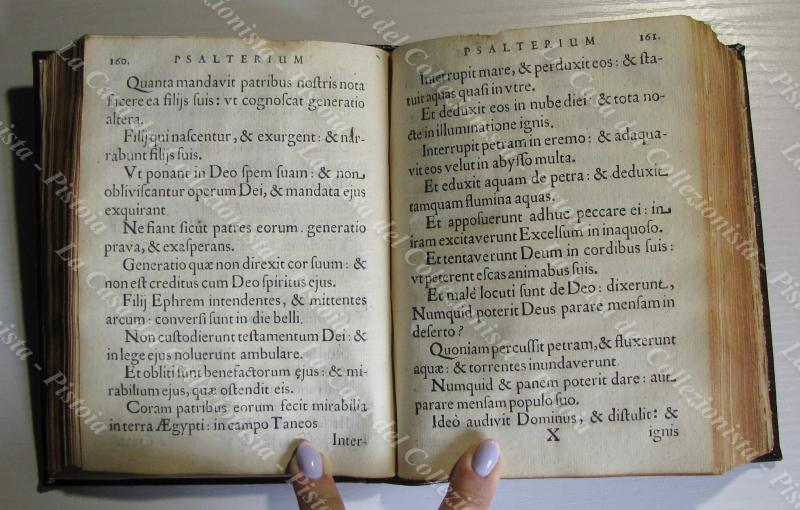 160. PSALTERIUM
Quanta mandavit patribus noſtris nota
facere ea filijs ſuis: vt cognoſcat generatio
altera.
Filij qui naſcentur, & exurgent: & nar-
rabunt filijs ſuis.
Vt ponant in Deo ſpem ſuam: & non
obliviſcantur operum Dei, & mandata ejus
exquirant.
Ne fiant ſicut patres eorum. generatio
prava, & exaſperans.
Generatio quæ non direxit cor ſuum: &
non eſt creditus cum Deo ſpiritus ejus.
Filij Ephrem intendentes, & mittentes
arcum: converſi ſunt in die belli.
Non cuſtodierunt teſtamentum Dei: &
in lege ejus noluerunt ambulare.
Et obliti ſunt benefactorum ejus: & mi-
rabilium ejus, quæ oſtendit eis.
Coram patribus eorum fecit mirabilia
in terra Ægypti: in campo Taneos
Inter-
PSALTERIUM 161.
Interrupit mare, & perduxit eos: & ſta-
tuit aquas quaſi in vtre.
Et deduxit eos in nube diei: & tota no-
cte in illuminatione ignis.
Interrupit petram in eremo: & adaqua-
vit eos velut in abyſſo multa.
Et eduxit aquam de petra: & deduxit
tamquam flumina aquas.
Et appoſuerunt adhuc peccare ei: in
iram excitaverunt Excelſum in inaquoſo.
Et tentaverunt Deum in cordibus ſuis:
vt peterent eſcas animabus ſuis.
Et malè locuti ſunt de Deo: dixerunt,
Numquid poterit Deus parare menſam in
deſerto?
Quoniam percuſſit petram, & fluxerunt
aquæ: & torrentes inundaverunt.
Numquid & panem poterit dare: aut
parare menſam populo ſuo.
Ideò audivit Dominus, & diſtulit: &
X ignis
La Casa del Collezionista - Pistoia